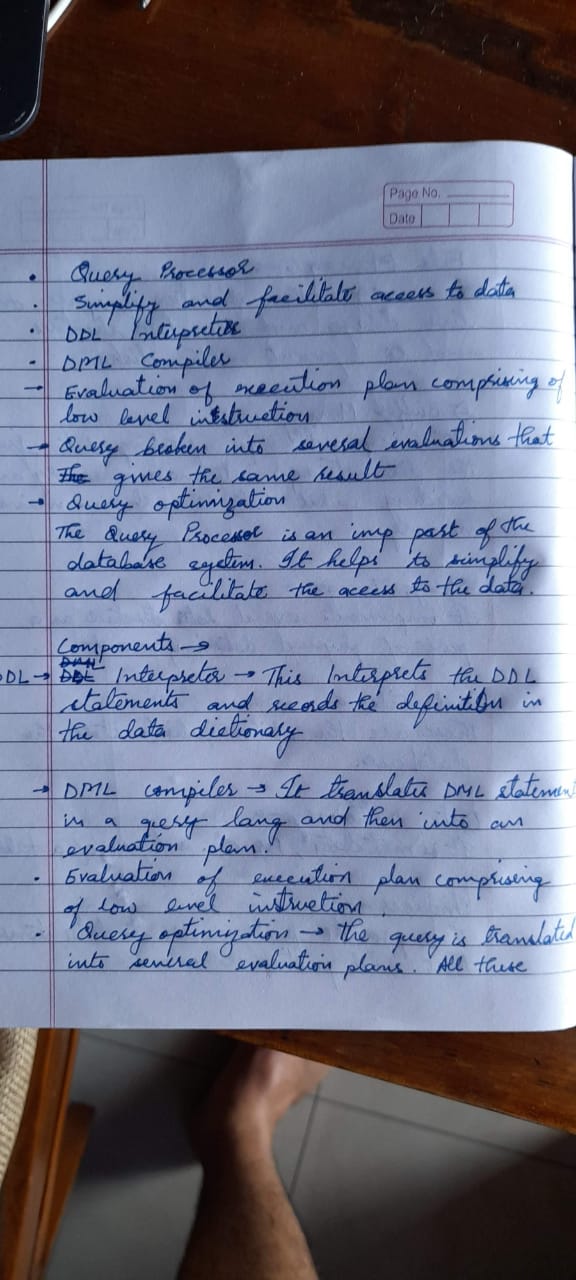 Page No.
Date
• Query Processor
• Simplify and facilitate access to data
• DDL Interpreter
- DML Compiler
→ Evaluation of execution plan comprising of
low level instruction
→ Query broken into several evaluations that
The gives the same result
→ Query optimization
The Query Processor is an imp part of the
database system. It helps to simplify
and facilitate the access to the data.
Components →
DDL → Interpreter → This Interprets the DDL
statements and records the definition in
the data dictionary
→ DML compiler → It translates DML statemen
in a query lang and then into an
evaluation plan.
• Evaluation of execution plan comprising
of low level instruction
• Query optimization → The query is translated
into several evaluation plans. All these